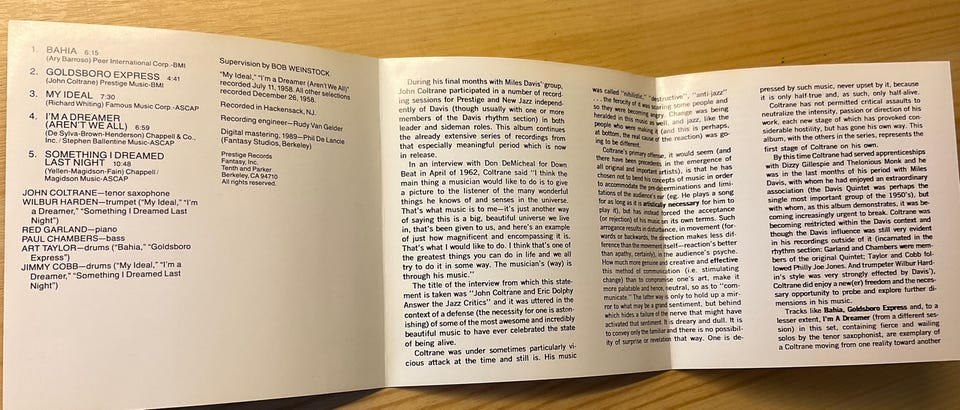 1. BAHIA 6:15
(Ary Barroso) Peer International Corp.-BMI
2. GOLDSBORO EXPRESS 4:41
(John Coltrane) Prestige Music-BMI
3. MY IDEAL 7:30
(Richard Whiting) Famous Music Corp.-ASCAP
4. I'M A DREAMER
(AREN'T WE ALL) 6:59
(De Sylva-Brown-Henderson) Chappell & Co.,
Inc./Stephen Ballentine Music-ASCAP
5. SOMETHING I DREAMED
LAST NIGHT 10:48
(Yellen-Magidson-Fain) Chappell/
Magidson Music-ASCAP
JOHN COLTRANE—tenor saxophone
WILBUR HARDEN—trumpet ("My Ideal," "I'm
a Dreamer," "Something I Dreamed Last
Night")
RED GARLAND—piano
PAUL CHAMBERS—bass
ART TAYLOR—drums ("Bahia," "Goldsboro
Express")
JIMMY COBB—drums ("My Ideal," "I'm a
Dreamer," "Something I Dreamed Last
Night")
Supervision by BOB WEINSTOCK
"My Ideal," "I'm a Dreamer (Aren't We All)"
recorded July 11, 1958. All other selections
recorded December 26, 1958.
Recorded in Hackensack, NJ.
Recording engineer—Rudy Van Gelder
Digital mastering, 1989—Phil De Lancie
(Fantasy Studios, Berkeley)
Prestige Records
Fantasy, Inc.
Tenth and Parker
Berkeley, CA 94710
All rights reserved.
During his final months with Miles Davis' group,
John Coltrane participated in a number of record-
ing sessions for Prestige and New Jazz independ-
ently of Davis (though usually with one or more
members of the Davis rhythm section) in both
leader and sideman roles. This album continues
the already extensive series of recordings from
that especially meaningful period which is now
in release.
In an interview with Don DeMicheal for Down
Beat in April of 1962, Coltrane said "I think the
main thing a musician would like to do is to give
a picture to the listener of the many wonderful
things he knows of and senses in the universe.
That's what music is to me—it's just another way
of saying this is a big, beautiful universe we live
in, that's been given to us, and here's an example
of just how magnificent and encompassing it is.
That's what I would like to do. I think that's one of
the greatest things you can do in life and we all
try to do it in some way. The musician's (way) is
through his music."
The title of the interview from which this state-
ment is taken was "John Coltrane and Eric Dolphy
Answer the Jazz Critics" and it was uttered in the
context of a defense (the necessity for one is aston-
ishing) of some of the most awesome and incredibly
beautiful music to have ever celebrated the state
of being alive.
Coltrane was under sometimes particularly vi-
cious attack at the time and still is. His music
was called "nihilistic," "destructive", "anti-jazz"
. . . the ferocity of it was scaring some people and
so they were becoming angry. Change was being
heralded in this music as well, and jazz, like the
people who were making it (and this is perhaps,
at bottom, the real cause of the reaction) was go-
ing to be different.
Coltrane's primary offense, it would seem (and
there have been precedents in the emergence of
all original and important artists), is that he has
chosen not to bend his concepts of music in order
to accommodate the pre-determinations and limi-
tations of the audience's ear (eg. He plays a song
for as long as it is artistically necessary for him to
play it), but has instead forced the acceptance
(or rejection) of his music on its own terms. Such
arrogance results in disturbance, in movement (for-
wards or backwards, the direction makes less dif-
ference than the movement itself—reaction's better
than apathy, certainly), in the audience's psyche.
How much more genuine and creative and effective
this method of communication (i.e. stimulating
change) than to compromise one's art, make it
more palatable and hence, neutral, so as to "com-
municate." The latter way is only to hold up a mir-
ror to what may be a grand sentiment, but behind
which hides a failure of the nerve that might have
activated that sentiment. It is dreary and dull. It is
to convey only the familiar and there is no possibil-
ity of surprise or revelation that way. One is de-
pressed by such music, never upset by it, because
it is only half-true and, as such, only half-alive.
Coltrane has not permitted critical assaults to
neutralize the intensity, passion or direction of his
work, each new stage of which has provoked con-
siderable hostility, but has gone his own way. This
album, with the others in the series, represents the
first stage of Coltrane on his own.
By this time Coltrane had served apprenticeships
with Dizzy Gillespie and Thelonious Monk and he
was in the last months of his period with Miles
Davis, with whom he had enjoyed an extraordinary
association (the Davis Quintet was perhaps the
single most important group of the 1950's), but
with whom, as this album demonstrates, it was be-
coming increasingly urgent to break. Coltrane was
becoming restricted within the Davis context and
though the Davis influence was still very evident
in his recordings outside of it (incarnated in the
rhythm section: Garland and Chambers were mem-
bers of the original Quintet; Taylor and Cobb fol-
lowed Philly Joe Jones. And trumpeter Wilbur Hard-
in's style was very strongly effected by Davis'),
Coltrane did enjoy a new(er) freedom and the neces-
sary opportunity to probe and explore further di-
mensions in his music.
Tracks like Bahia, Goldsboro Express and, to a
lesser extent, I'm A Dreamer (from a different ses-
sion) in this set, containing fierce and wailing
solos by the tenor saxophonist, are exemplary of
a Coltrane moving from one reality toward another